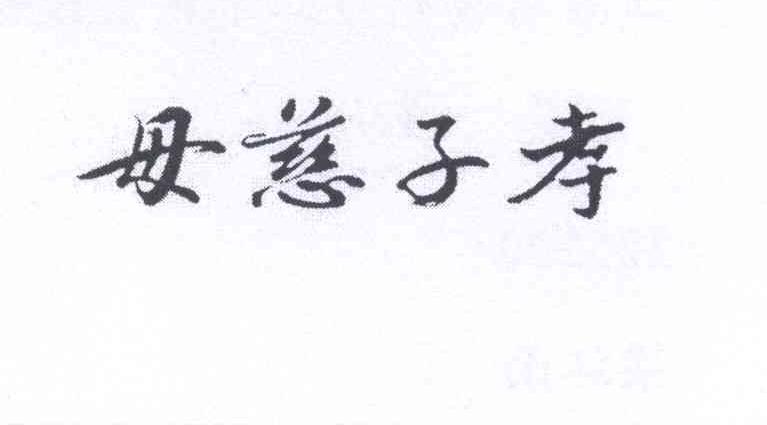 母慈子孝